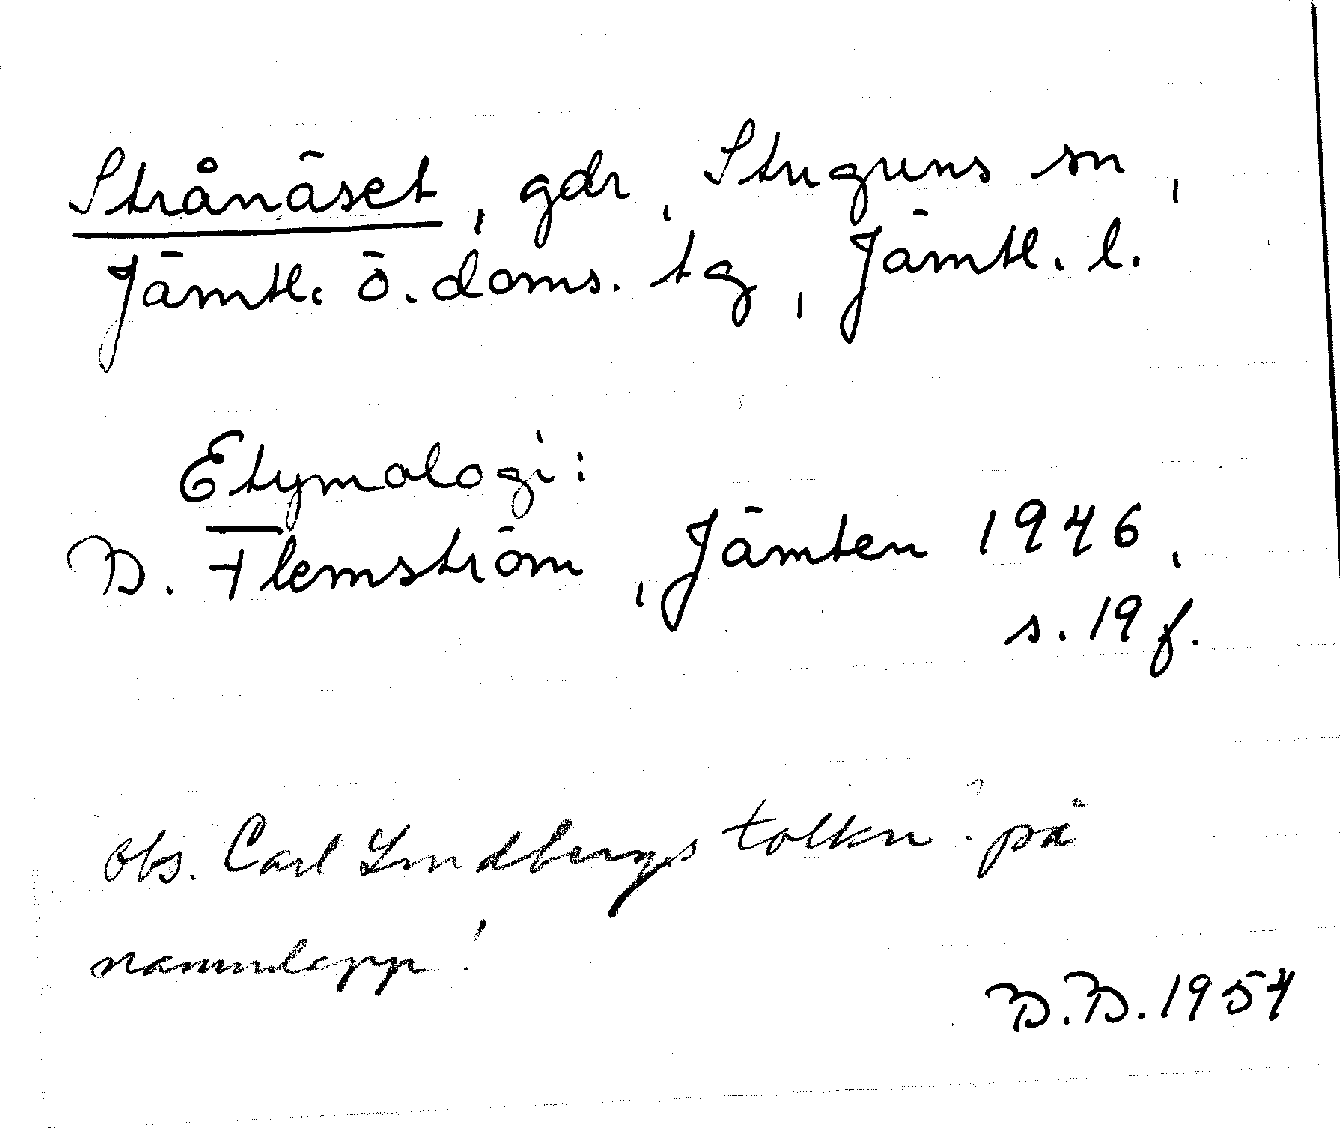 Strånäset, gdr, Stuguns sn,
Jämtl. ö. doms. tg, Jämtl. l.
Etymologi:
B. Flemström, Jämten 1946,
s. 19 f.
Obs. Carl Lindbergs tolkn. på
namnlapp!
B.B. 1954